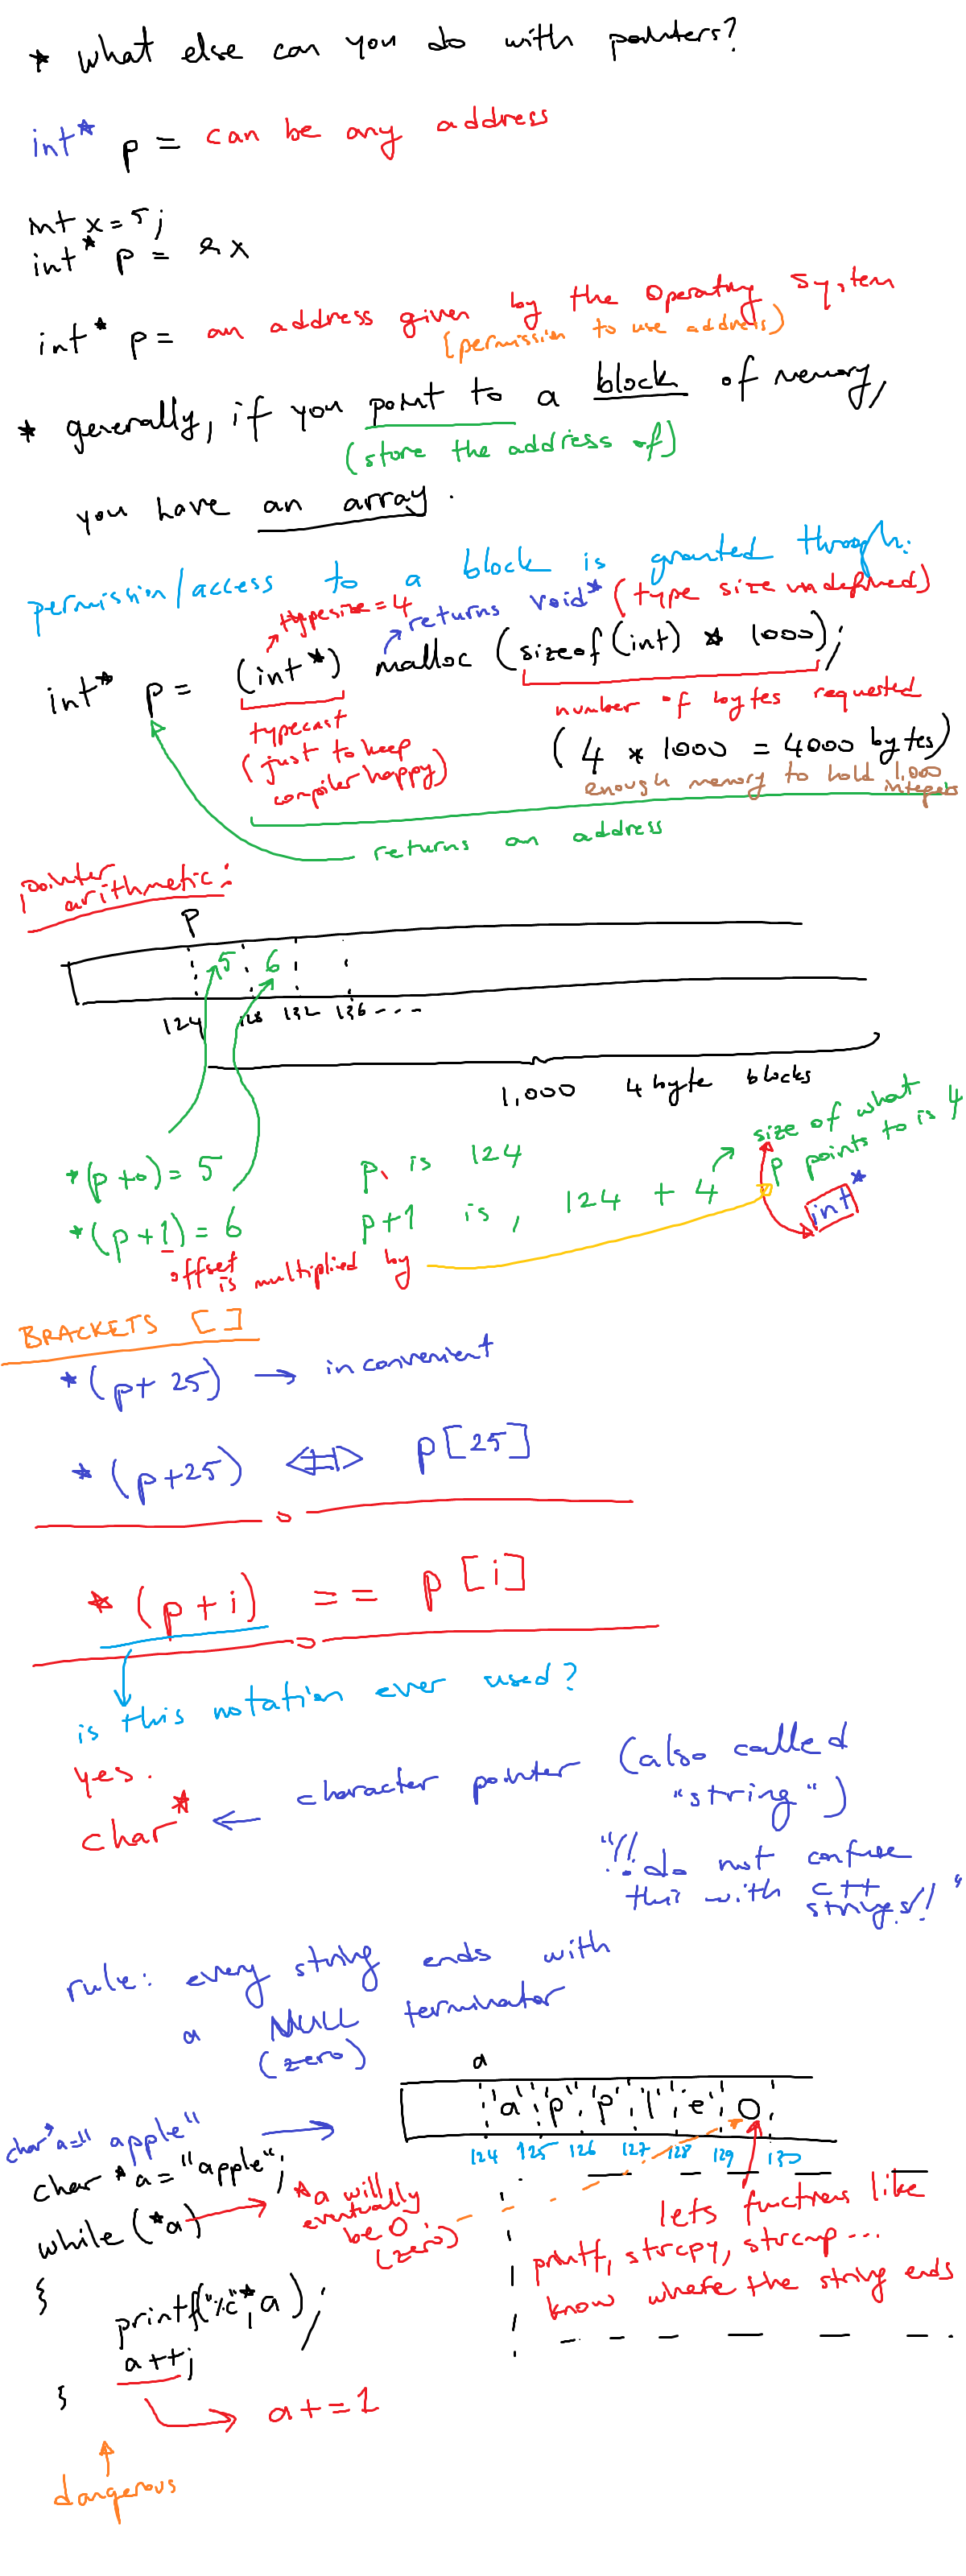 * what else can you do with pointers?
int* p = can be any address
int x = 5;
int* p = &x
int* p = an address given by the Operating System
(permission to use address)
* generally, if you point to a block of memory,
(store the address of)
you have an array.
permission/access to a block is granted through:
typesize = 4 returns void* (type size undefined)
int* p = (int*) malloc (sizeof(int) * 1000);
typecast
(just to keep
compiler happy)
number of bytes requested
(4 * 1000 = 4000 bytes)
enough memory to hold 1,000
integers
returns an address
pointer
arithmetic:
p
5 6
124 128 132 136 ...
1,000 4 byte blocks
*(p+0) = 5
*(p+1) = 6
offset
is multiplied by
p is 124
p+1 is, 124 + 4
size of what
p points to is 4
int*
BRACKETS []
*(p+ 25) → inconvenient
*(p+25) <=> p[25]
*(p+i) == p[i]
is this notation ever used?
yes.
char* ← character pointer (also called
"string")
"!! do not confuse
this with c++
strings!!"
rule: every string ends with
a NULL terminator
(zero)
char*a="apple" →
a
'a' 'p' 'p' 'l' 'e' 0
124 125 126 127 128 129 130
char *a = "apple";
while (*a)
{
printf("%c",*a);
a++;
}
*a will
eventually
be 0.
(zero)
lets functions like
printf, strcpy, strcmp...
know where the string ends
a+=1
dangerous